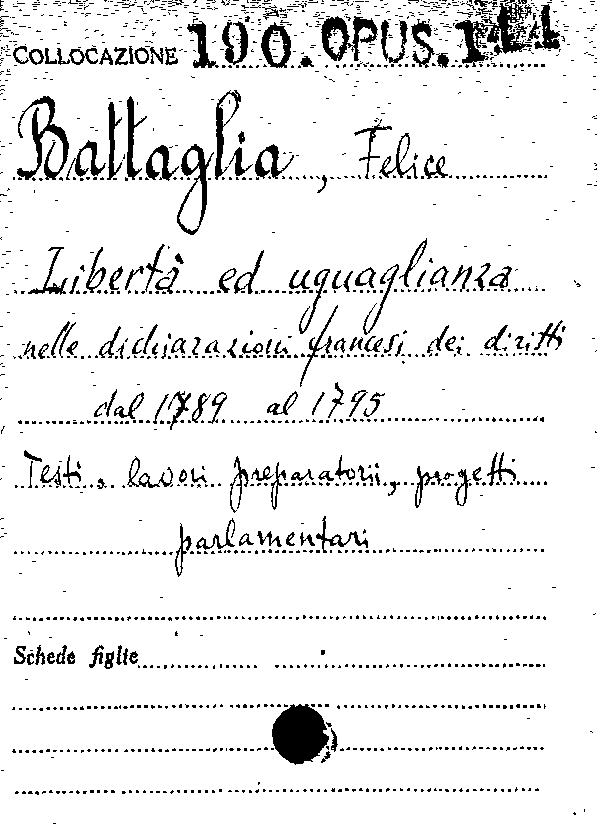 COLLOCAZIONE 190. OPUS. 144
Battaglia, Felice
Libertà ed uguaglianza
nelle dichiarazioni francesi dei diritti
dal 1789 al 1795
Testi, lavori preparatorii, progetti
parlamentari
Schede figlie